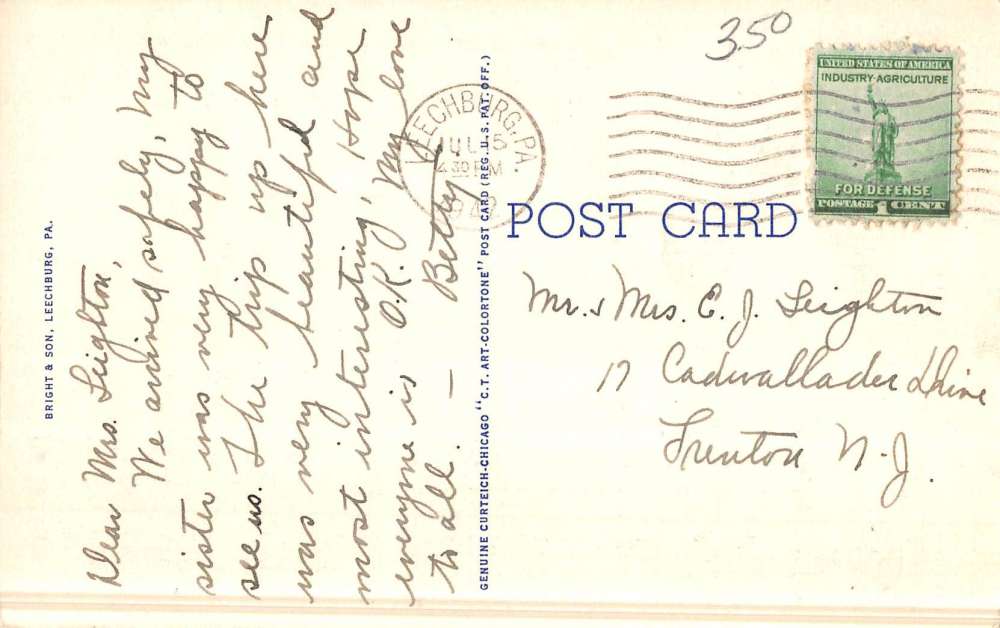 Dear Mrs. Leighton,
We arrived safely, My
sister was very happy to
see us. The trip up here
was very beautiful and
most interesting, Hope
everyone is O.K. My love
to all. — Betty
BRIGHT & SON, LEECHBURG, PA.
GENUINE CURTEICH-CHICAGO "C.T. ART-COLORTONE" POST CARD (REG. U.S. PAT. OFF.)
3.50
LEECHBURG, PA.
JUL 15
4 30 PM
1942
UNITED STATES OF AMERICA
INDUSTRY-AGRICULTURE
FOR DEFENSE
POSTAGE 1 CENT
POST CARD
Mr. & Mrs. E. J. Leighton
17 Cadwallader Drive
Trenton N.J.